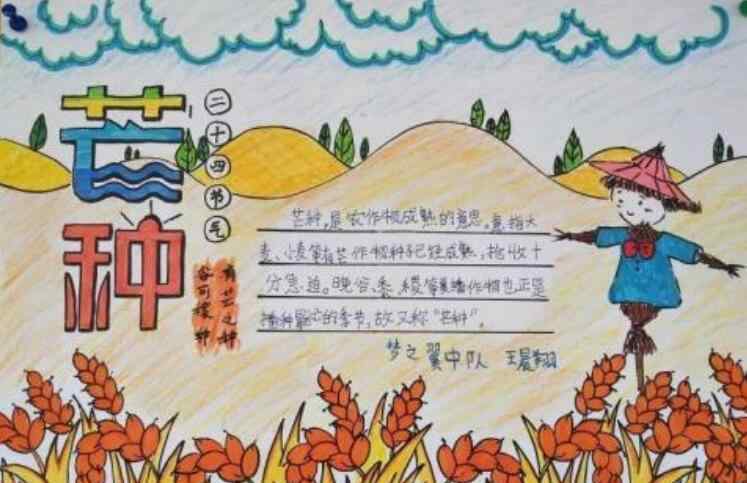 芒种
二十四节气
有芒之种
谷可稼种
芒种,是农作物成熟的意思。意指大
麦、小麦等有芒作物种子已经成熟,抢收十
分急迫。晚谷、黍、稷等夏播作物也正是
播种最忙的季节,故又称"芒种"。
梦之翼中队 王晨翔